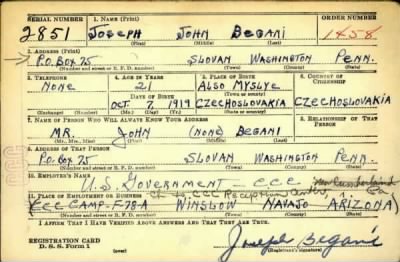 SERIAL NUMBER 1. NAME (Print) ORDER NUMBER
2851 JOSEPH JOHN BEGANI 1458
(First) (Middle) (Last)
2. ADDRESS (Print)
P.O. BOX 75 SLOVAN WASHINGTON PENN.
(Number and street or R. F. D. number) (Town) (County) (State)
3. TELEPHONE 4. AGE IN YEARS 5. PLACE OF BIRTH 6. COUNTRY OF CITIZENSHIP
NONE 21 ALSO MYSLYE
DATE OF BIRTH
OCT 7, 1919 CZECHOSLOVAKIA CZECHOSLOVAKIA
(Exchange) (Number) (Mo.) (Day) (Yr.) (State or country)
7. NAME OF PERSON WHO WILL ALWAYS KNOW YOUR ADDRESS 8. RELATIONSHIP OF THAT PERSON
MR. JOHN (NONE) BEGANI
(Mr., Mrs., Miss) (First) (Middle) (Last)
9. ADDRESS OF THAT PERSON
P.O. BOX 75 SLOVAN WASHINGTON PENN.
(Number and street or R. F. D. number) (Town) (County) (State)
10. EMPLOYER'S NAME
U.S. GOVERNMENT — CCC
11. PLACE OF EMPLOYMENT OR BUSINESS
CCC CAMP-F-78-A WINSLOW NAVAJO ARIZONA
(Number and street or R. F. D. number) (Town) (County) (State)
I AFFIRM THAT I HAVE VERIFIED ABOVE ANSWERS AND THAT THEY ARE TRUE.
REGISTRATION CARD
D. S. S. Form 1
Joseph Begani
(Registrant's signature)